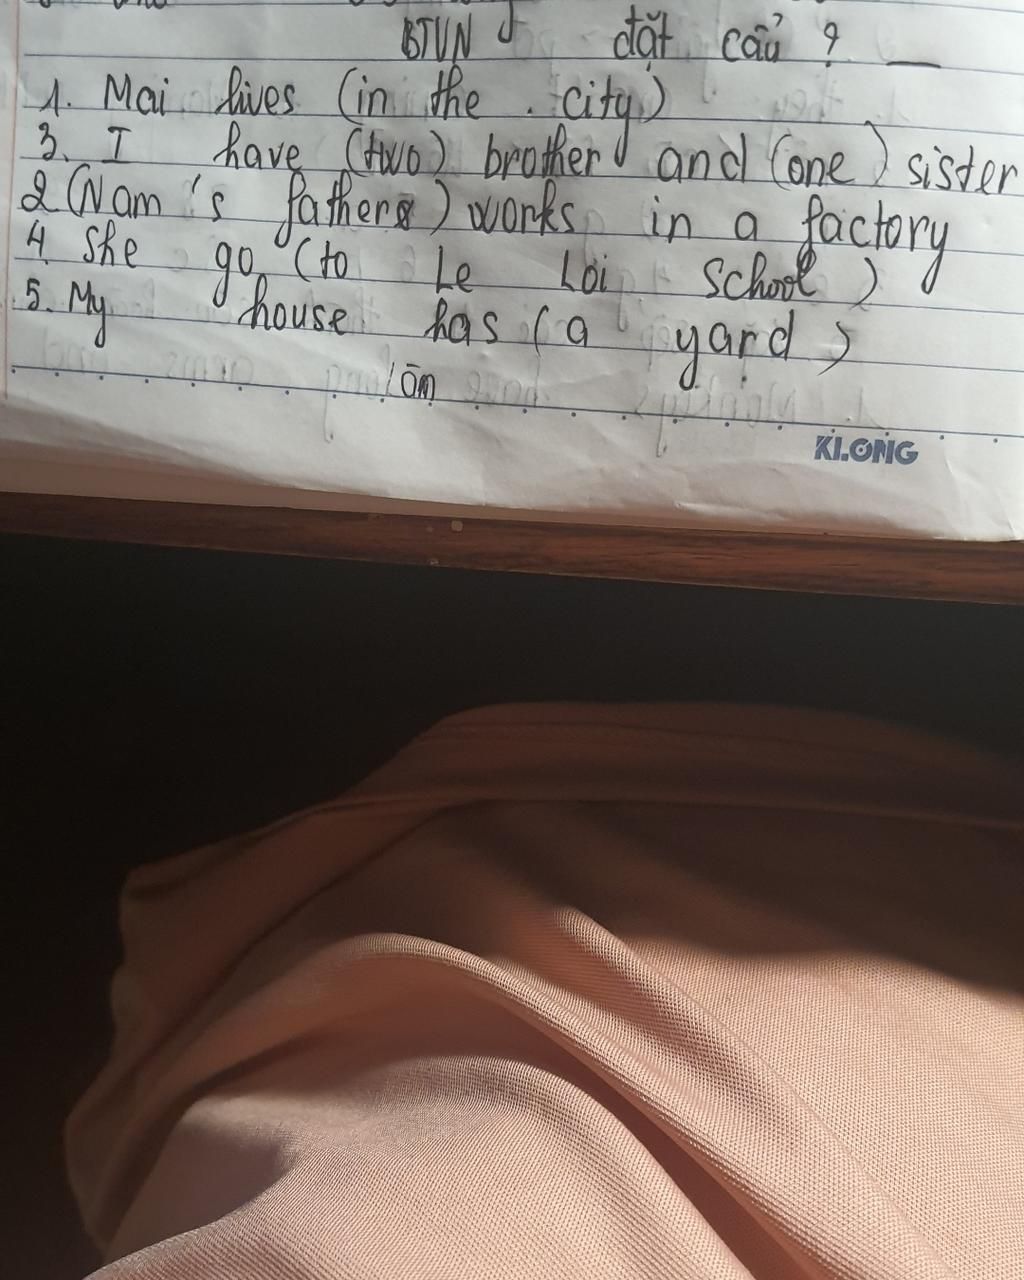 BTVN đặt câu ?
1. Mai lives (in the . city)
3. I have (two) brother and (one) sister
2 (Nam 's father) works in a factory
4. She go (to Le Loi School)
5. My house has (a yard)
KLONG